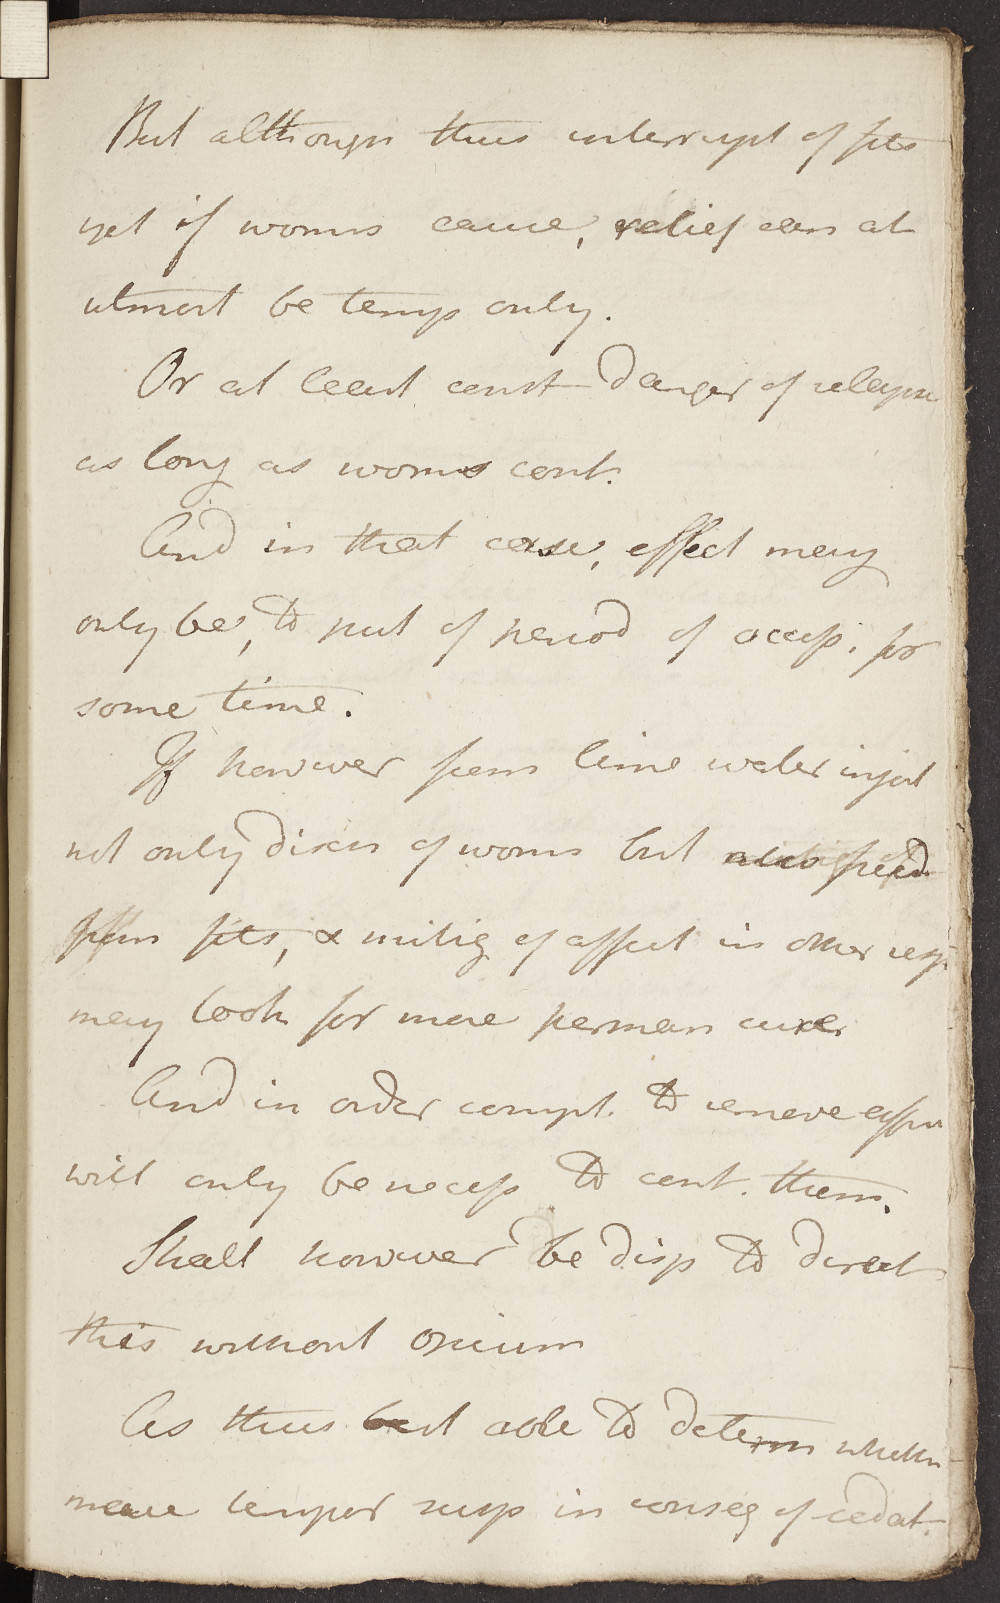 But although thus interrupt of fits
yet if worms cause, relief can at
utmost be temp only.
Or at least const danger of relapse
as long as worms cont.
And in that case, effect may
only be, to put of period of access. for
some time.
If however from lime water inject
not only disch of worms but also freed
from fits, & mitig of affect in other resp.
may look for more perman cure.
And in order compt. to remove affn
will only be necess to cont. them.
Shall however be disp to direct
this without opium
As thus best able to determ whether
mere tempor susp in conseq of sedat.